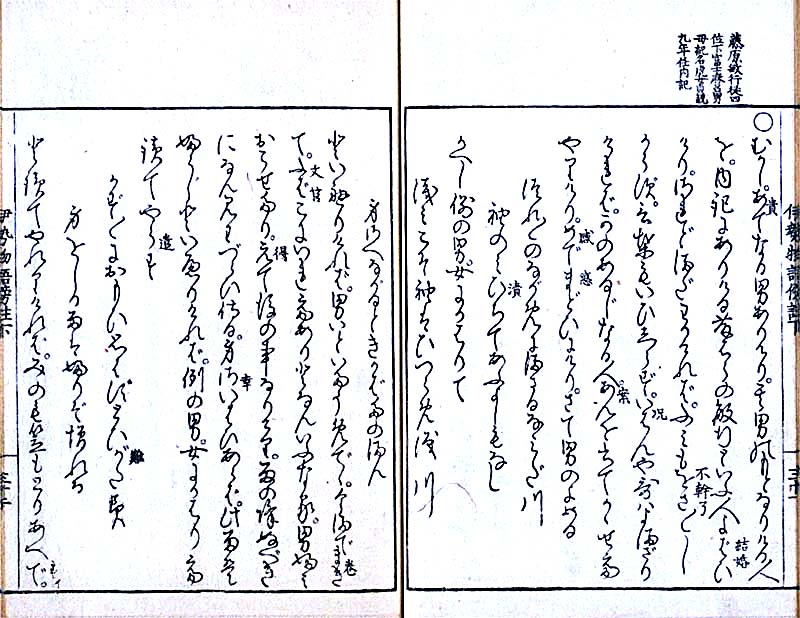 藤原敏行従四
位下富士麿男
母紀名虎女貞観
九年任内記
伊勢物語傍註下
○むかしあてなる男ありけり。其男のもとなりける人
を。内記にありける藤はらの敏行といふ人よばひ
けり。されどまだわかければ。ふみもをさ〳〵し
からず。ことばもいひしらず。いはんや哥はよまざり
ければかのあるじなる人。あんをかきてかゝせて
やりけり。めでまどひにけり。さて男のよめる
つれ〴〵のながめにまさるなみだ川
袖のみひぢてあふよしもなし
かへし例の男。女にかはりて
浅みこそ袖はひづらめ涙川
身さへながるときかばたのまん
といへりければ。男いといたうめでゝ。今まで
て。ふばこにいれてありとなんいふなる。男ふみ
おこせたり。えて後の事なりけり。雨の降ぬべき
になん見わづらひ侍る。身さいはひあらば。此雨は
ふらじといへりければ。例の男。女にかはりて
読てやらす
かず〳〵におもひおもはずとひがたみ
身をしる雨は降ぞ増れる
と読てやれりければ。みのも笠もとりあへで。
貴
結婚
不幹了
况
案
感
惑
漬
巻
文筥
得
幸
遣
難